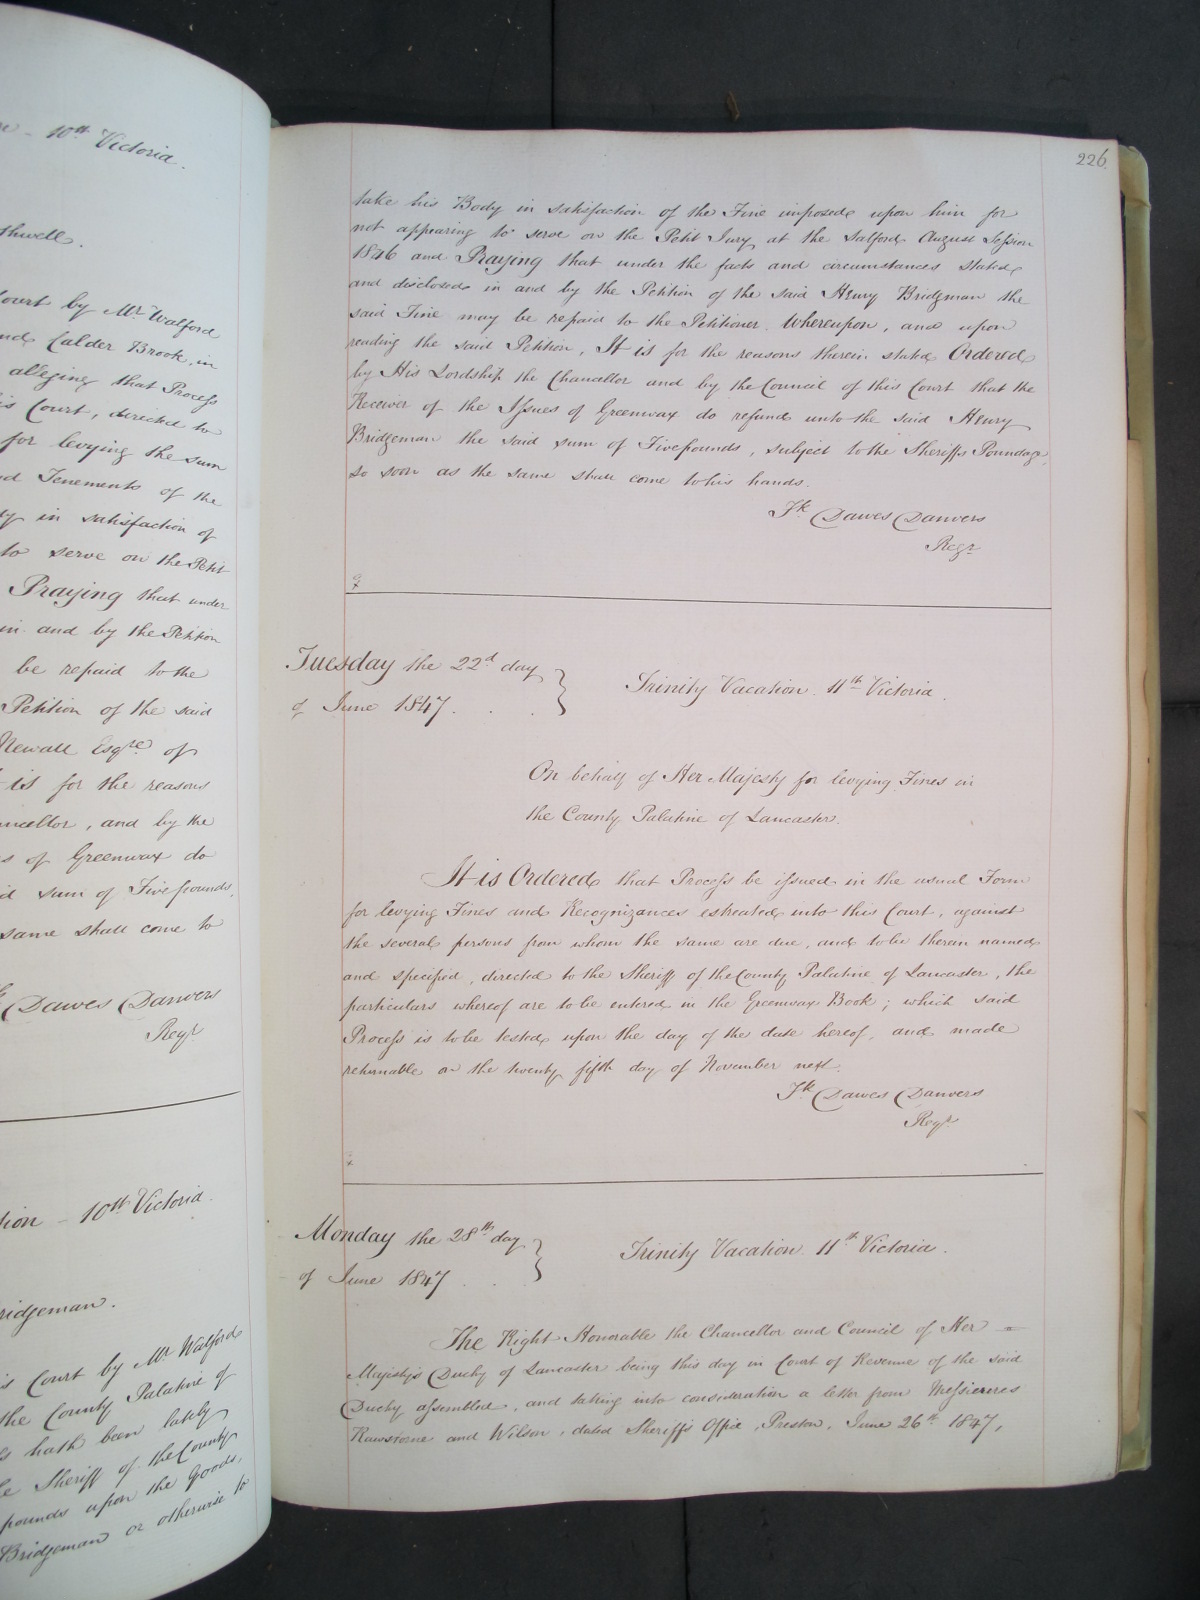 10th Victoria.
thwell.
Court by Mr Walford
and Calder Brook, in
alleging that Process
is Court, directed to
for levying the sum
nd Tenements of the
dy in satisfaction of
to serve on the Petit
Praying that under
in and by the Petition
be repaid to the
Petition of the said
Newall Esqre of
It is for the reasons
ancellor, and by the
s of Greenwax do
id sum of Five pounds,
same shall come to
Dawes Danvers
Regr
tion - 10th Victoria.
ridgeman.
is Court by Mr Walford
the County Palatine of
s hath been lately
he Sheriff of the County
pounds upon the Goods,
Bridgeman or otherwise to
226.
take his Body in satisfaction of the Fine imposed upon him for
not appearing to serve on the Petit Jury at the Salford August Session
1846 and Praying that under the facts and circumstances stated
and disclosed in and by the Petition of the said Henry Bridgman the
said Fine may be repaid to the Petitioner. Whereupon, and upon
reading the said Petition, It is for the reasons therein stated Ordered
by His Lordship the Chancellor and by the Council of this Court that the
Receiver of the Issues of Greenwax do refund unto the said Henry
Bridgeman the said sum of Five pounds, subject to the Sheriffs Poundage,
so soon as the same shall come to his hands.
Fk Dawes Danvers
Regr
Tuesday the 22d day
of June 1847 . . .
Trinity Vacation 11th Victoria.
On behalf of Her Majesty for levying Fines in
the County Palatine of Lancaster.
It is Ordered that Process be issued in the usual Form
for levying Fines and Recognizances estreated into this Court, against
the several persons from whom the same are due, and to be therein named
and specified, directed to the Sheriff of the County Palatine of Lancaster, the
particulars whereof are to be entered in the Greenwax Book; which said
Process is to be tested upon the day of the date hereof, and made
returnable on the twenty fifth day of November next.
Fk Dawes Danvers
Regr
Monday the 28th day
of June 1847 . . .
Trinity Vacation 11th Victoria.
The Right Honorable the Chancellor and Council of Her =
Majesty's Duchy of Lancaster being this day in Court of Revenue of the said
Duchy assembled, and taking into consideration a letter from Messieures
Rawstorne and Wilson, dated Sheriff's Office, Preston, June 26th 1847,